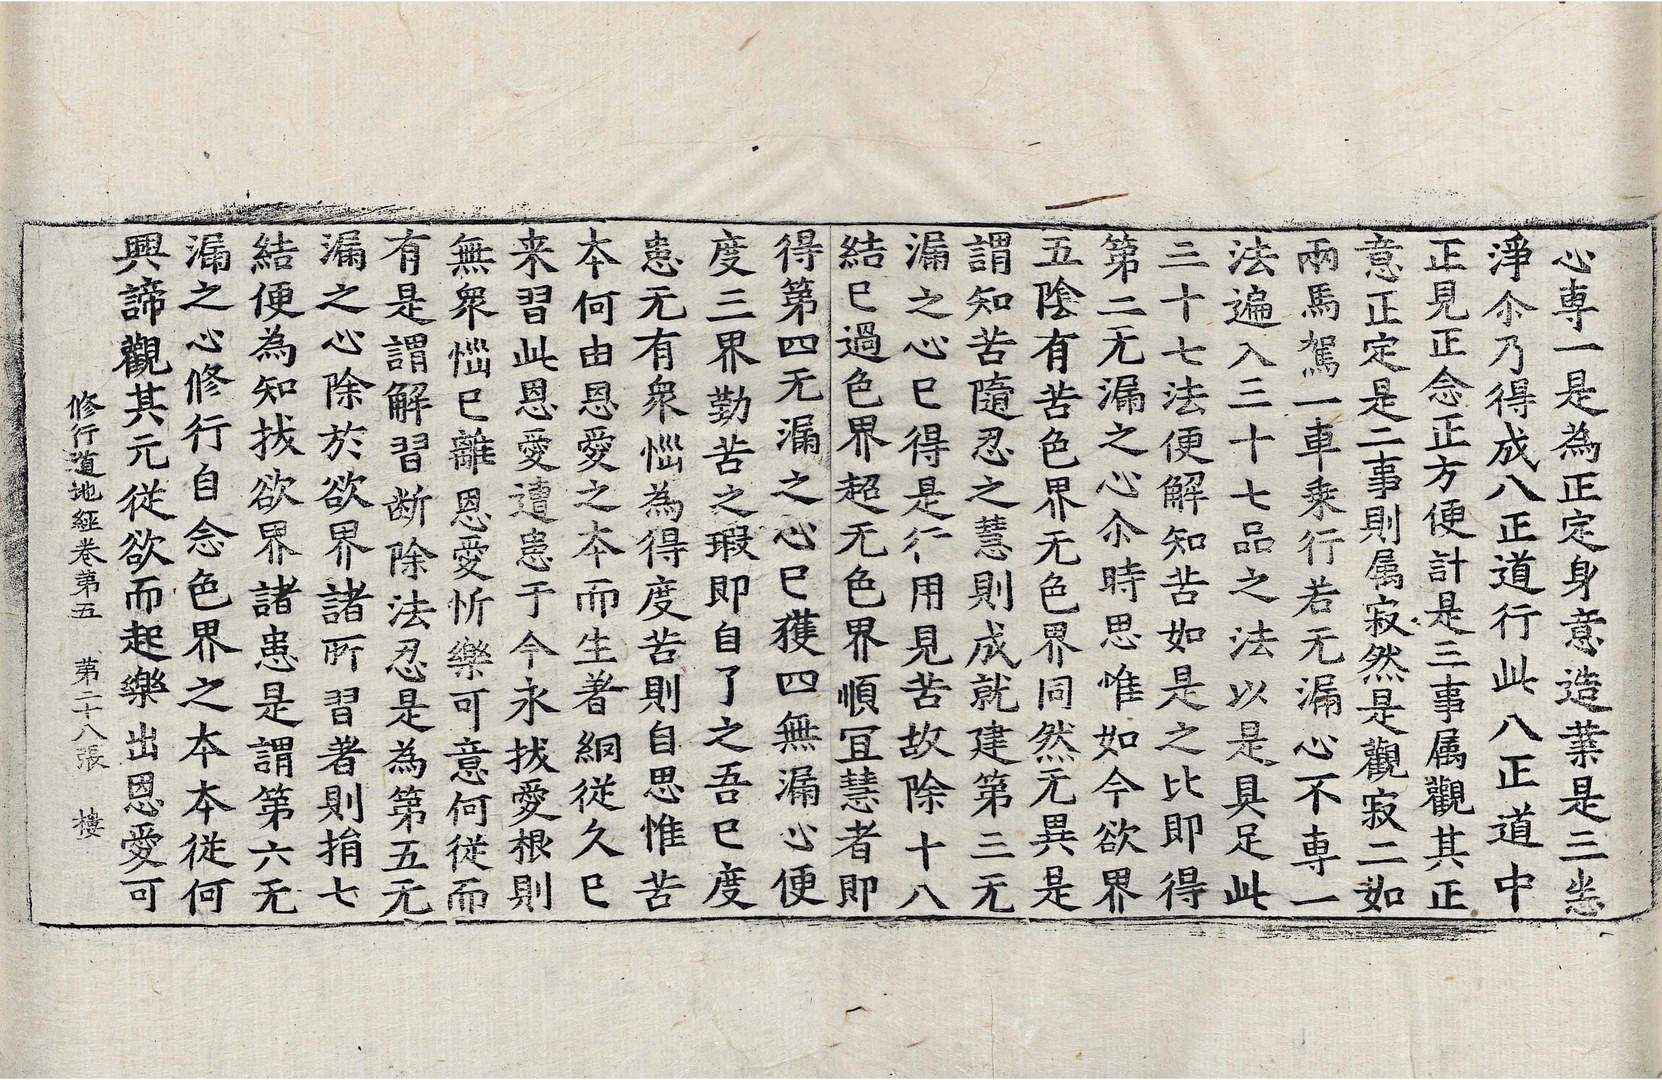 心専一是為正定身意造業是三悉
淨尒乃得成八正道行此八正道中
正見正念正方便計是三事属觀其正
意正定是二事則属寂然是觀寂二如
兩馬駕一車乗行若无漏心不専一
法遍入三十七品之法以是具足此
三十七法便解知苦如是之比即得
第二无漏之心尒時思惟如今欲界
五陰有苦色界无色界同然无異是
謂知苦隨忍之慧則成就建第三无
漏之心巳得是行用見苦故除十八
結巳過色界超无色界順冝慧者即
得第四无漏之心巳獲四無漏心便
度三界勤苦之瑕即自了之吾巳度
患无有衆惱為得度苦則自思惟苦
本何由恩愛之本而生著網従久巳
来習此恩愛遭患于今永拔愛根則
無衆惱巳離恩愛忻樂可意何従而
有是謂解習断除法忍是為第五无
漏之心除於欲界諸所習著則捐七
結便為知拔欲界諸患是謂第六无
漏之心修行自念色界之本本従何
興諦觀其元従欲而起樂出恩愛可
修行道地經卷第五　第二十八張　樓